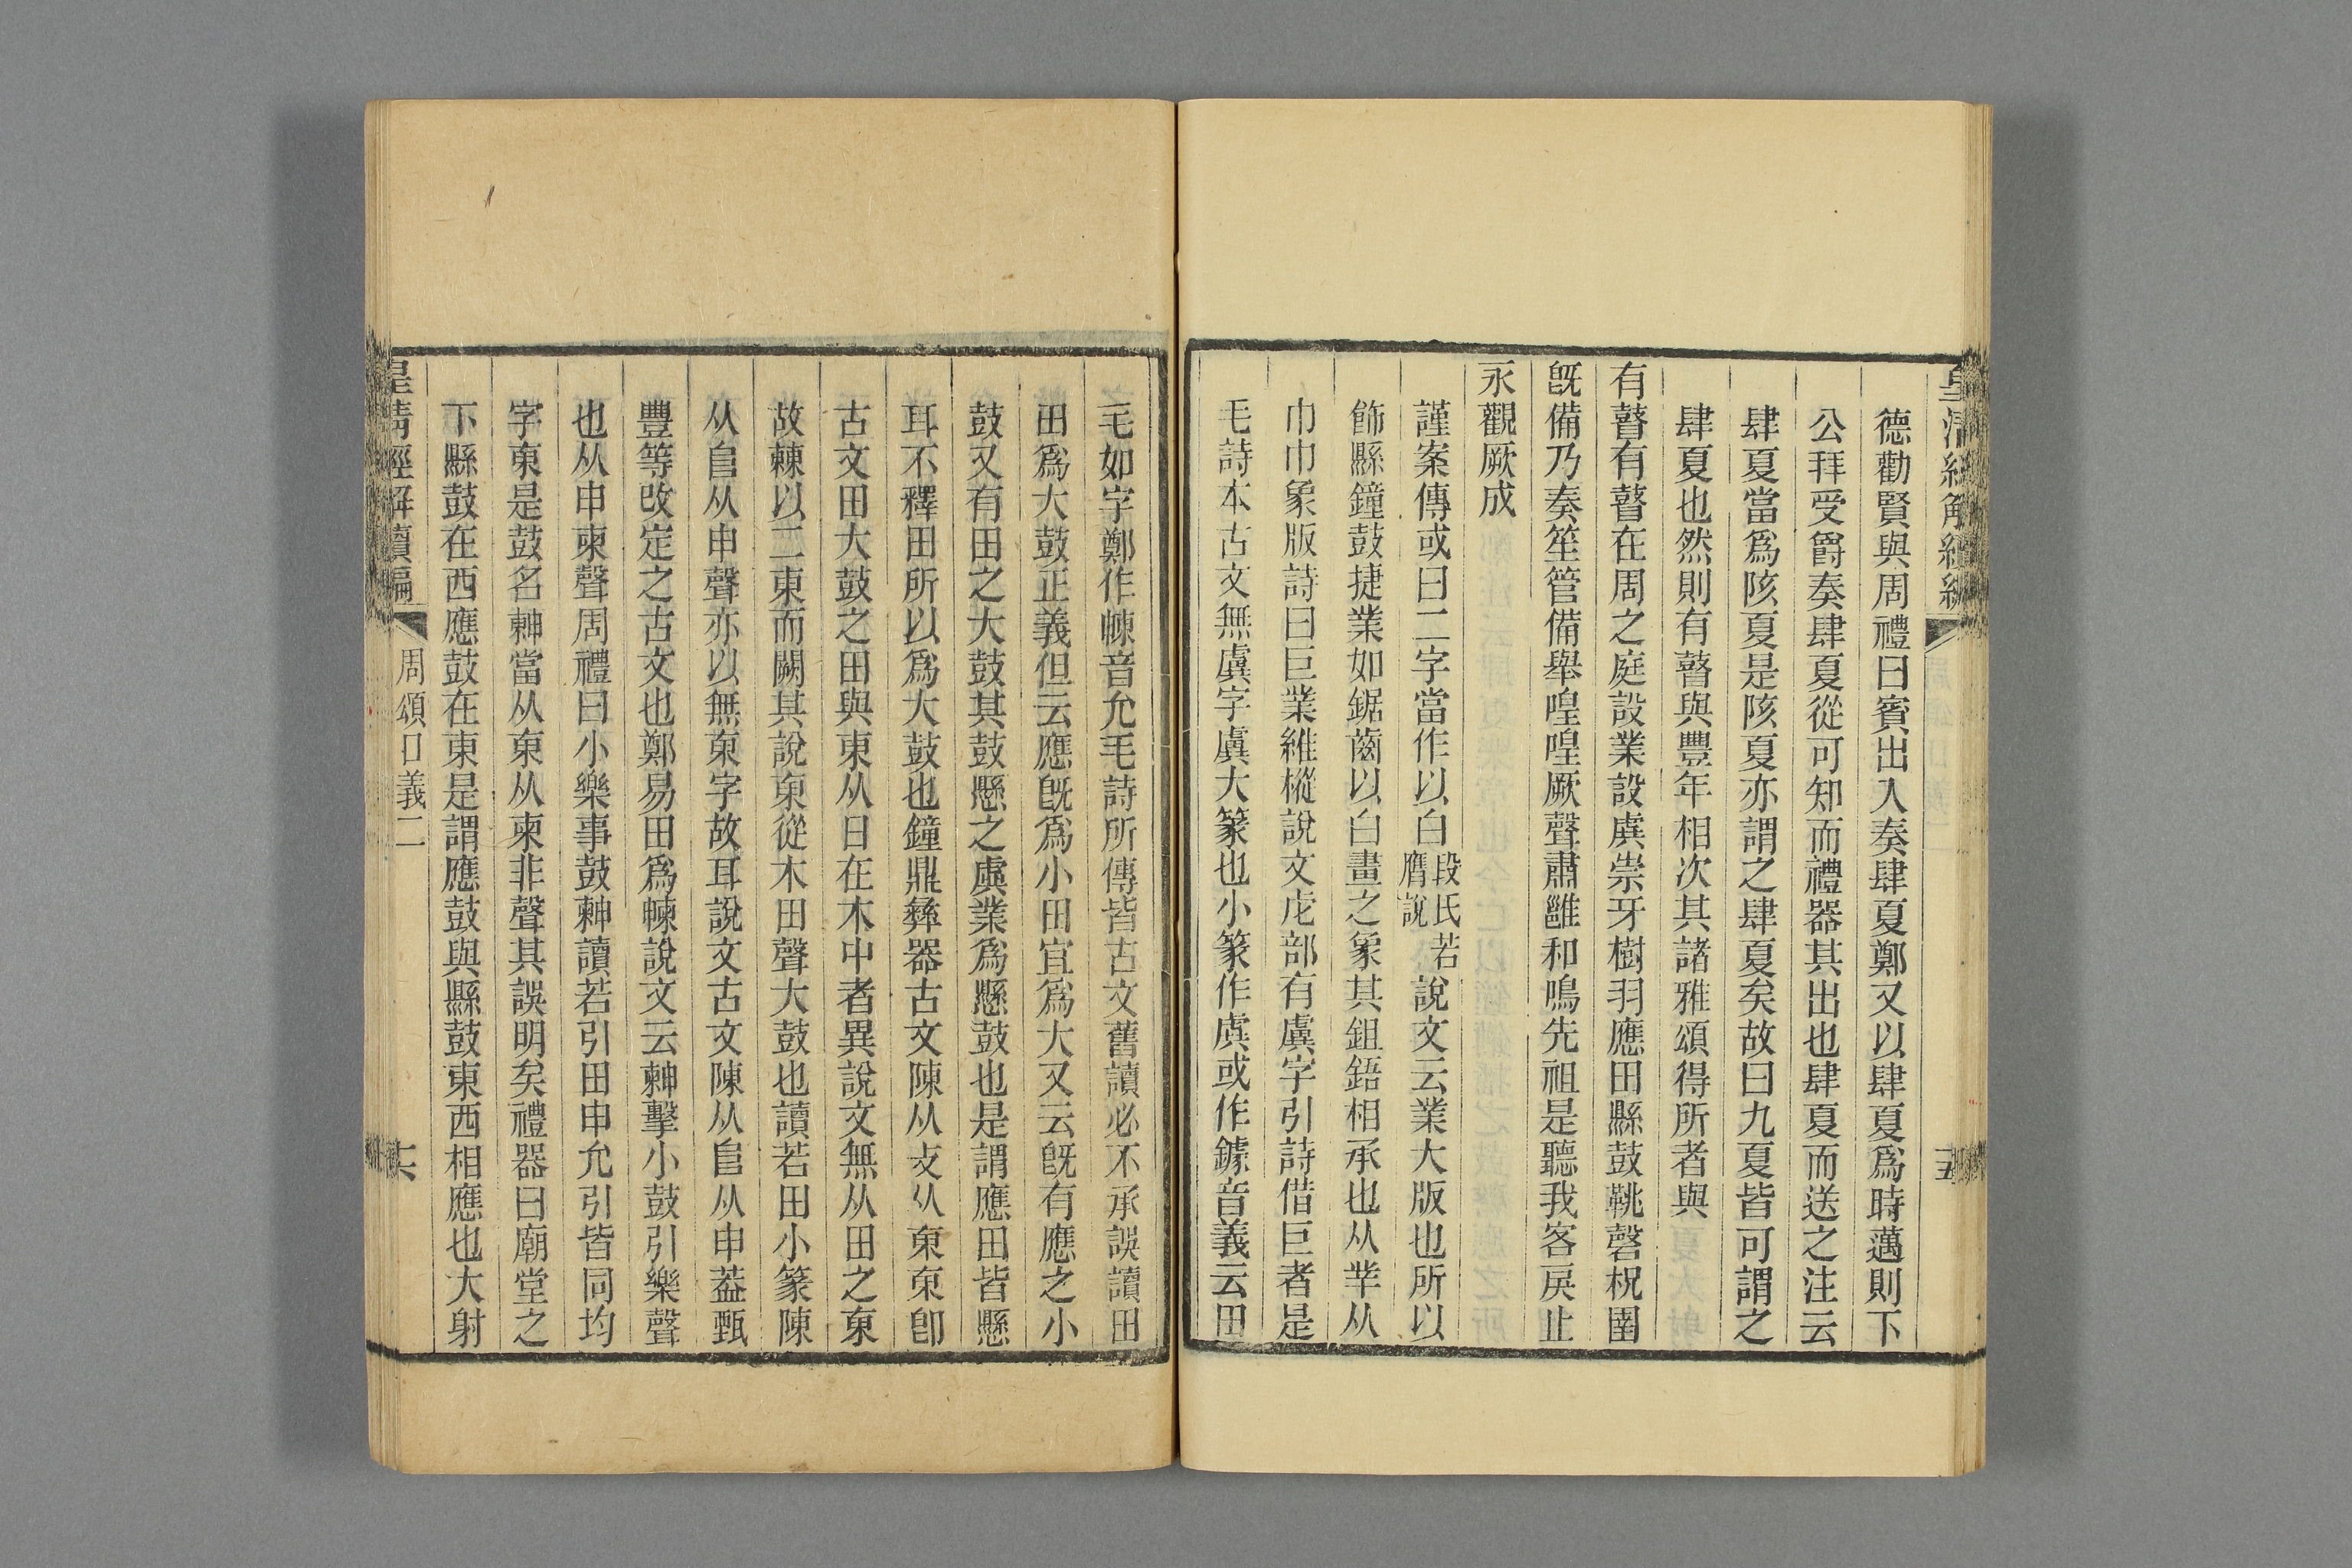 皇清經解續編
五
德勸賢與周禮曰賓出入奏肆夏鄭又以肆夏爲時邁則下
公拜受爵奏肆夏從可知而禮器其出也肆夏而送之注云
肆夏當爲陔夏是陔夏亦謂之肆夏矣故曰九夏皆可謂之
肆夏也然則有瞽與豐年相次其諸雅頌得所者與
有瞽有瞽在周之庭設業設虡崇牙樹羽應田縣鼓鞉磬柷圉
旣備乃奏笙管備舉喤喤厥聲肅雝和鳴先祖是聽我客戾止
永觀厥成
謹案傳或曰二字當作以白段氏若膺說說文云業大版也所以
飾縣鐘鼓捷業如鋸齒以白畫之象其鉏鋙相承也从丵从
巾巾象版詩曰巨業維樅說文虍部有虞字引詩借巨者是
毛詩本古文無虡字虡大篆也小篆作虡或作鐻音義云田
毛如字鄭作㯥音允毛詩所傳皆古文舊讀必不承誤讀田
田爲大鼓正義但云應旣爲小田宜爲大又云旣有應之小
鼓又有田之大鼓其鼓懸之虡業爲懸鼓也是謂應田皆懸
耳不釋田所以爲大鼓也鐘鼎彝器古文陳从攴从㯥㯥卽
古文田大鼓之田與東从日在木中者異說文無从田之㯥
故㯥以二東而闕其說㯥從木田聲大鼓也讀若田小篆陳
从𨸏从申聲亦以無㯥字故耳說文古文陳从𨸏从申葢甄
豐等改定之古文也鄭易田爲㯥說文云𣌾擊小鼓引樂聲
也从申柬聲周禮曰小樂事鼓𣌾讀若引田申允引皆同均
字㯥是鼓名𣌾當从㯥从柬非聲其誤明矣禮器曰廟堂之
下縣鼓在西應鼓在東是謂應鼓與縣鼓東西相應也大射
皇清經解續編
周頌口義二
六